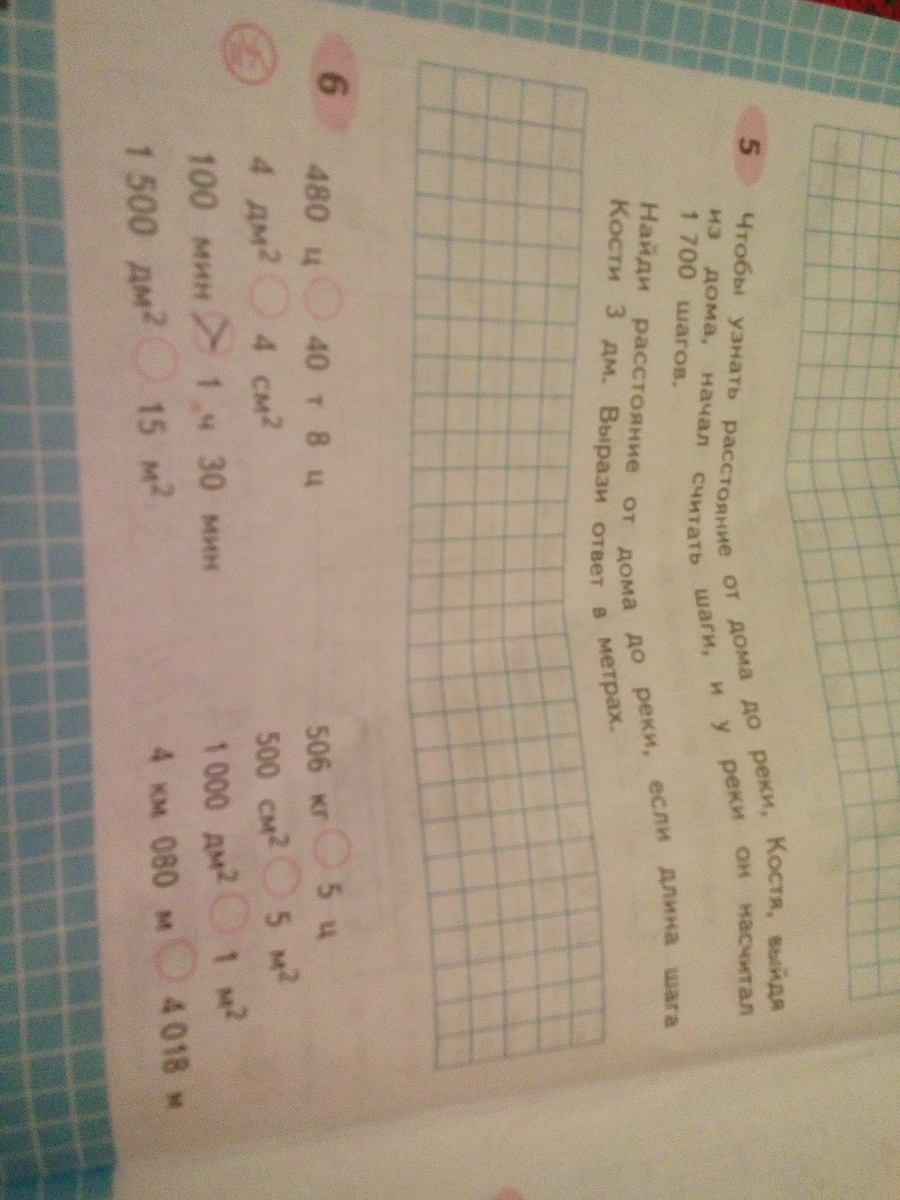 5 Чтобы узнать расстояние от дома до реки, Костя, выйдя
из дома, начал считать шаги, и у реки он насчитал
1 700 шагов.
Найди расстояние от дома до реки, если длина шага
Кости 3 дм. Вырази ответ в метрах.
6 480 ц 40 т 8 ц 506 кг 5 ц
4 дм² 4 см² 500 см² 5 м²
100 мин > 1 ч 30 мин 1 000 дм² 1 м²
1 500 дм² 15 м² 4 км 080 м 4 018 м